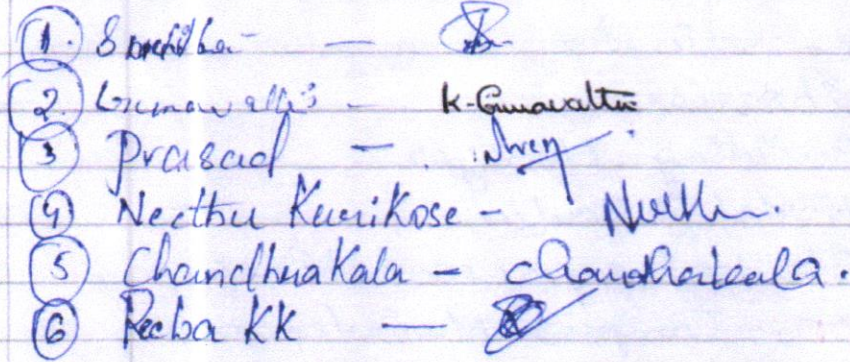 1.
2. Gunavathi - K-Gunavathi
3 Prasad -
4 Neethu Kurikose - Neethu.
5 Chandhrakala - Chandhrakala.
6 Reeba KK -